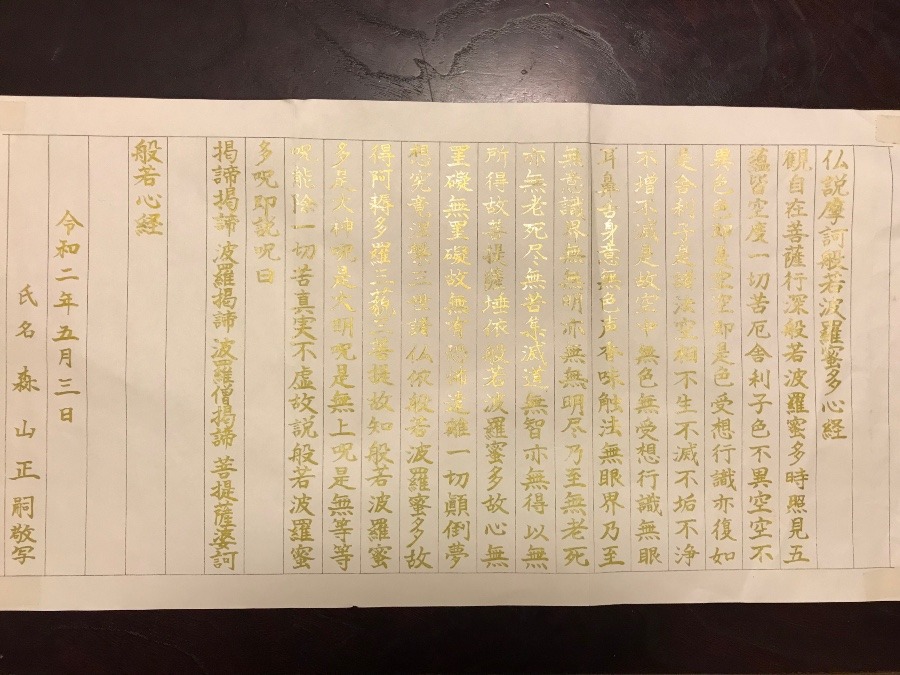 仏説摩訶般若波羅蜜多心経
観自在菩薩行深般若波羅蜜多時照見五
蘊皆空度一切苦厄舎利子色不異空空不
異色色即是空空即是色受想行識亦復如
是舎利子是諸法空相不生不滅不垢不浄
不増不減是故空中無色無受想行識無眼
耳鼻舌身意無色声香味触法無眼界乃至
無意識界無無明亦無無明尽乃至無老死
亦無老死尽無苦集滅道無智亦無得以無
所得故菩提薩埵依般若波羅蜜多故心無
罣礙無罣礙故無有恐怖遠離一切顛倒夢
想究竟涅槃三世諸仏依般若波羅蜜多故
得阿耨多羅三藐三菩提故知般若波羅蜜
多是大神呪是大明呪是無上呪是無等等
呪能除一切苦真実不虚故説般若波羅蜜
多呪即説呪曰
掲諦掲諦 波羅掲諦 波羅僧掲諦 菩提薩婆訶
般若心経
令和二年五月三日
氏名 森山正嗣敬写